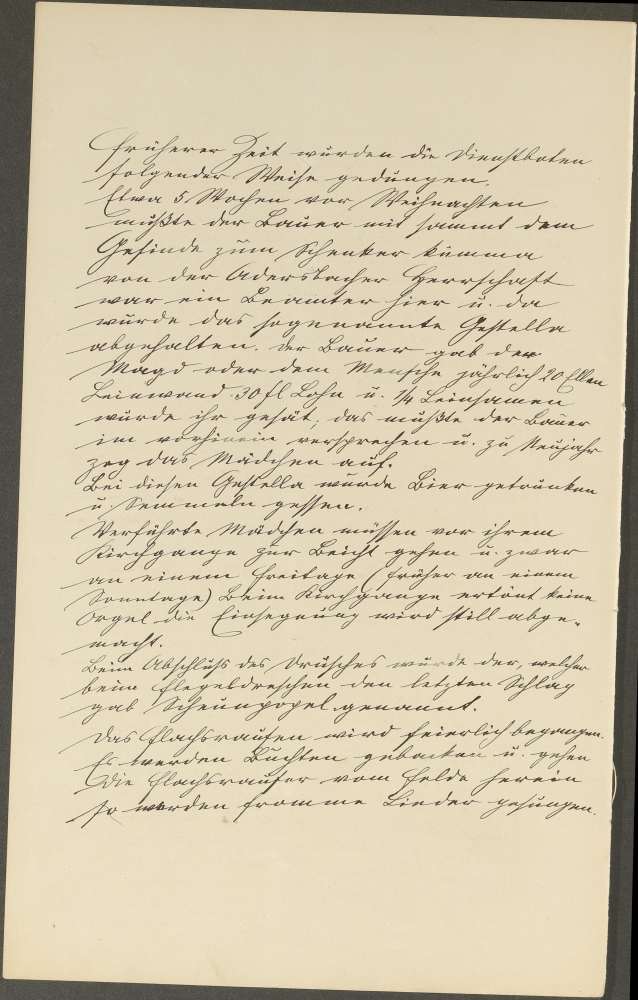 früherer Zeit wurden die Dienstboten
folgender Weise gedungen.
Etwa 5 Wochen vor Weihnachten
mußte der Bauer mit sammt dem
Gesinde zum Schenker kumma
von der Adersbacher Herrschaft
war ein Beamter hier u. da
wurde das sogenannte Gestella
abgehalten. der Bauer gab der
Magd oder dem Mensche jährlich 20 Ellen
Leinwand 30 fl Lohn u. 1/4 Leinsamen
wurde ihr gesät, das mußte der Bauer
im vorhinein versprechen u. zu Neujahr
zog das Mädchen auf.
Bei diesen Gestella wurde Bier getrunken
u. Semmeln gessen.
Verführte Mädchen müssen vor ihrem
Kirchgange zur Beicht gehen u. zwar
an einem Freitage (früher an einem
Sonntage) Beim Kirchgange ertönt keine
Orgel die Einsegnung wird still abge-
macht.
Beim Abschluß des Drusches wurde der, welcher
beim Flegeldreschen den letzten Schlag
gab Scheunpopel genannt.
Das Flachsraufen wird feierlich begangen.
Es werden Buchten gebacken u. gehen
die Flachsraufer vom Felde herein
so werden fromme Lieder gesungen.